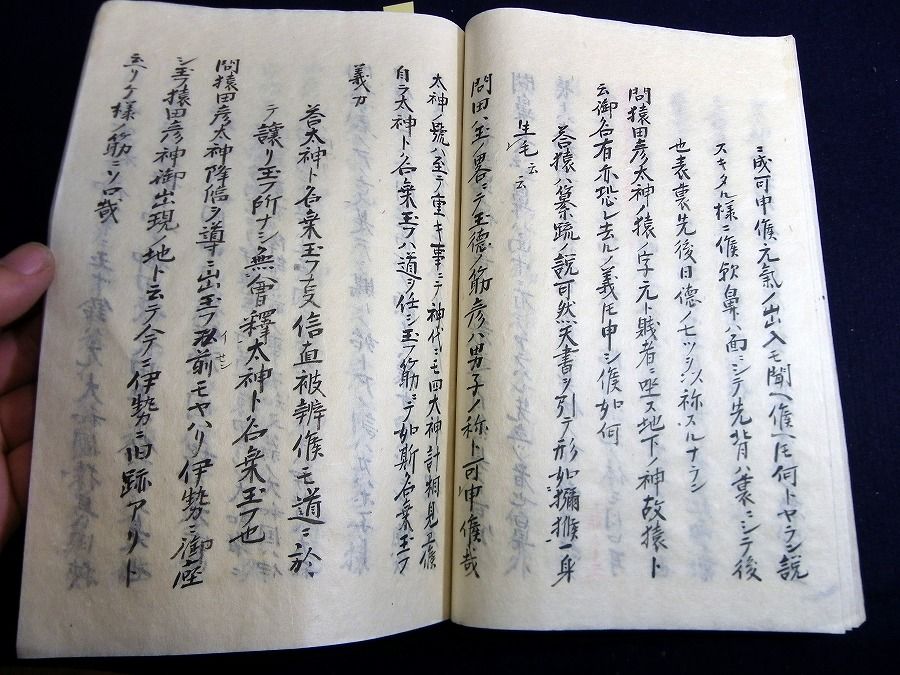 ニ成可申候元氣ノ出入モ聞ヘ候ヘ𪜈何トヤラン説
スキタル様ニ候欤鼻ハ面ニシテ先背ハ裏ニシテ後
也表裏先後日徳ノセツヲ以祢スルナラン
問猿田彦大神ノ猿ノ字元ト賎者ニ坐ス地下ノ神故猿ト
云御名有亦恐レ去ルノ義𪜈申シ候如何
答猿ハ纂疏ノ説可然天書ヲ引テ形如獼猴一身
生毛云云
問田ハ玉ノ畧ニテ玉徳ノ筋彦ハ男子ノ称ト可申候哉
太神ノ號ハ至テ重キ事ニテ神代ニモ四大神計相見ヱ候
自ラ太神ト名乗玉フハ道ヲ任シ玉フ筋ニテ如斯名乗玉フ
義カ
答太神ト名乗玉フ叓信直被辨候モ道ニ於
テ譲リ玉フ所ナシ無會釋太神ト名乗玉フ也
問猿田彦太神降臨ヲ導ニ出玉フ以前モヤハリ伊勢ニ御座
イゼン
シ玉フ猿田彦神御出現ノ地ト云テ今ニ伊勢ニ旧跡アリト
云リケ様ノ筋ニソロ哉